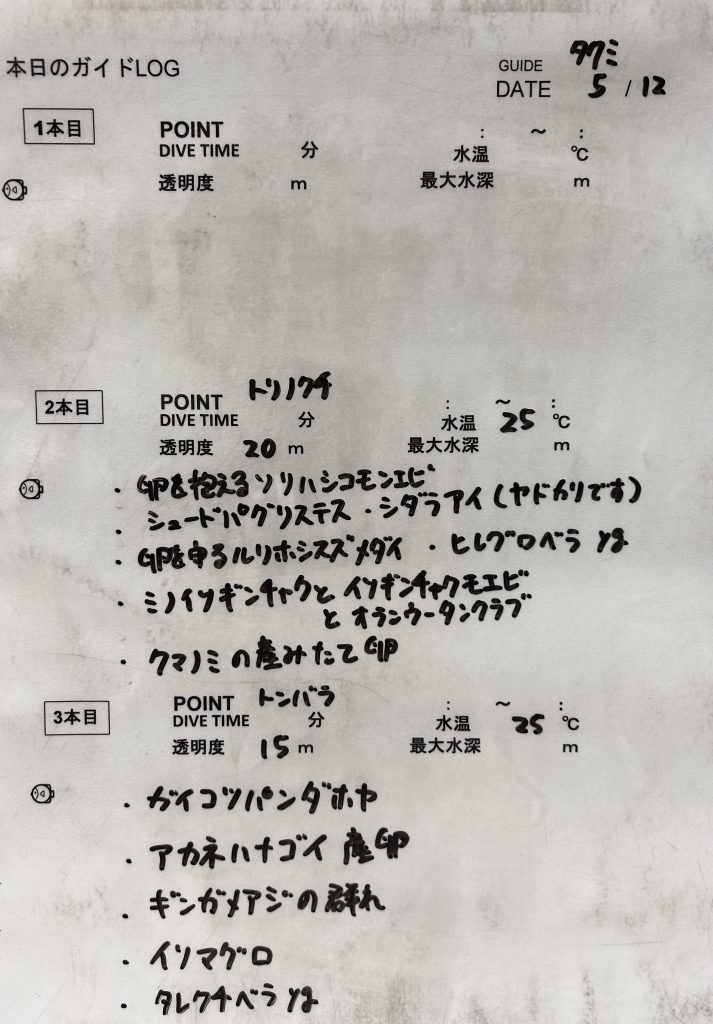 本日のガイドLOG
GUIDE タクミ
DATE 5 / 12
1本目
POINT : ~ :
DIVE TIME 分 水温 ℃
透明度 m 最大水深 m
2本目
POINT トリノクチ : ~ :
DIVE TIME 分 水温 25 ℃
透明度 20 m 最大水深 m
・卵を抱えるソリハシコモンエビ
・シュードパグリステス・シダラアイ(ヤドカリです)
・卵を守るルリホシスズメダイ ・ヒレグロベラ yg
・ミノイソギンチャクと イソギンチャクモエビ
と オランウータンクラブ
・クマノミの産みたて卵
3本目
POINT トンバラ : ~ :
DIVE TIME 分 水温 25 ℃
透明度 15 m 最大水深 m
・ガイコツパンダホヤ
・アカネハナゴイ 産卵
・ギンガメアジの群れ
・イソマグロ
・タレクチベラ yg